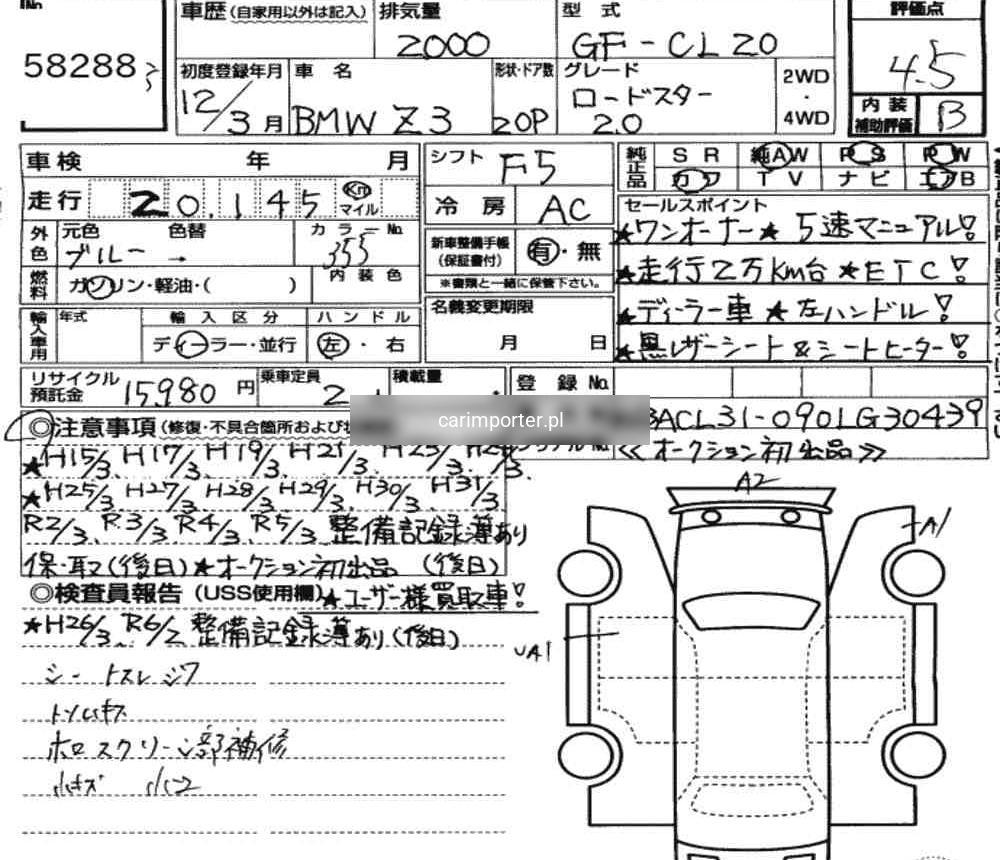 No.
車歴 (自家用以外は記入) 排気量 型式 評価点
58288
2000 GF-CL20 4.5
初度登録年月 車名 形状・ドア数 グレード 2WD
12/3月 BMW Z3 2OP ロードスター 2.0 ・ 4WD
内装補助評価 B
車検 年 月 シフト F5 純正品 SR 純AW PS PW
カワ TV ナビ エアB
走行 20,145 Km マイル 冷房 AC セールスポイント
外色 元色 色替 カラーNo. 新車整備手帳(保証書付) 有・無 ★ワンオーナー★5速マニュアル!
ブルー → 355
内装色 ※書類と一緒に保管下さい。 ★走行2万Km台★ETC!
燃料 ガソリン・軽油・( )
輸入車用 年式 輸入区分 ハンドル 名義変更期限 ★ディーラー車★左ハンドル!
ディーラー・並行 左・右 月 日 ★黒レザーシート&シートヒーター!
リサイクル預託金 15980円 乗車定員 2 積載量 登録No.
carimporter.pl
BACL31-0901LG30439
◎注意事項(修復・不具合箇所および
シリアルNo. <<オークション初出品>>
★H15/3. H17/3 H19/3. H21/3. H23/3.
★H25/3. H27/3 H28/3 H29/3 H30/3 H31/3
R2/3. R3/3 R4/3. R5/3 整備記録簿あり
保・取(後日)★オークション初出品 (後日)
◎検査員報告(USS使用欄)★ユーザー様買取車!
★H26/3. R6/2 整備記録簿あり(後日)
シートスレ シワ
ホロスクリーン部補修
小キズ 小凹
A2
A1
UA1